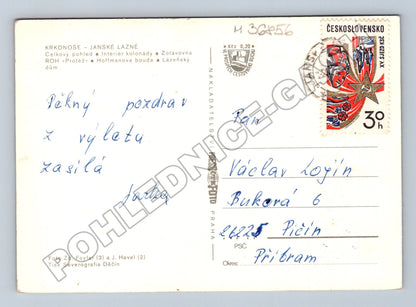 KRKONOŠE - JANSKÉ LÁZNĚ
Celkový pohled • Interiér kolonády • Zotavovna
ROH »Protěž« • Hoffmanova bouda • Lázeňský
dům
Pěkný pozdrav
z výletu
zasílá
Foto Zd. Feyfar (3) a J. Havel (2)
Tisk Severografia Děčín
NAKLADATELSTVÍ
PRAHA
M 36856
Kčs 0,30
ČESKOSLOVENSKO
XV. SJEZD KSČ
30 h
Pan
Václav Login
Buková 6
26225 Pičín
PSČ
Příbram
Okres
POHLEDNICE-GA